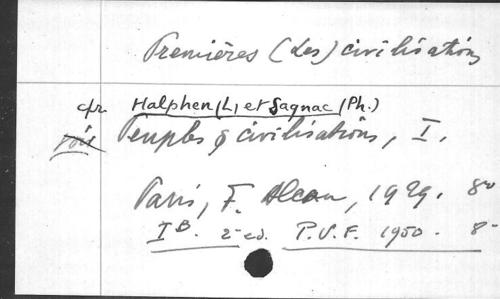 Premières (Les) civilisations
cfr. Halphen (L) et Sagnac (Ph.)
voir Peuples & civilisations, I.
Paris, F. Alcan, 1929. 8º
I B. 2e ed. P.U.F. 1950. 8-